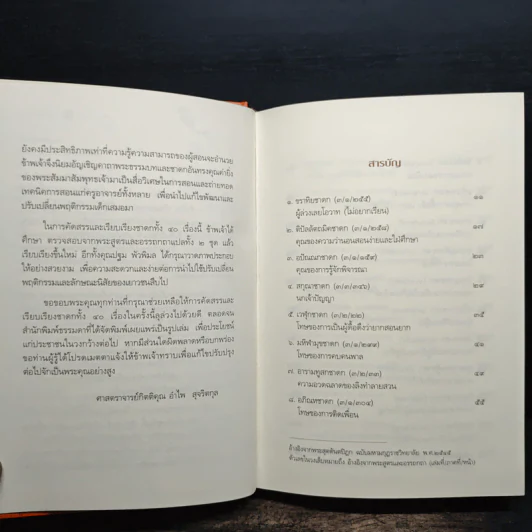 ยังคงมีประสิทธิภาพเท่าที่ความรู้ความสามารถของผู้สอนจะอำนวย
ข้าพเจ้าจึงนิยมอัญเชิญคาถาพระธรรมบทและชาดกอันทรงคุณค่ายิ่ง
ของพระสัมมาสัมพุทธเจ้ามาเป็นสื่อวิเศษในการสอนและถ่ายทอด
เทคนิคการสอนแก่ครูอาจารย์ทั้งหลาย เพื่อนำไปแก้ไขพัฒนาและ
ปรับเปลี่ยนพฤติกรรมเด็กเสมอมา
ในการคัดสรรและเรียบเรียงชาดกทั้ง ๔๐ เรื่องนี้ ข้าพเจ้าได้
ศึกษา ตรวจสอบจากพระสูตรและอรรถกถาแปลทั้ง ๒ ชุด แล้ว
เรียบเรียงขึ้นใหม่ อีกทั้งคุณปฐม พัวพิมล ได้กรุณาวาดภาพประกอบ
ให้อย่างสวยงาม เพื่อความสะดวกและง่ายต่อการนำไปใช้ปรับเปลี่ยน
พฤติกรรมและลักษณะนิสัยของเยาวชนสืบไป
ขอขอบพระคุณทุกท่านที่กรุณาช่วยเหลือให้การคัดสรรและ
เรียบเรียงชาดกทั้ง ๔๐ เรื่องในครั้งนี้ลุล่วงไปด้วยดี ตลอดจน
สำนักพิมพ์ธรรมดาที่ได้จัดพิมพ์เผยแพร่เป็นรูปเล่ม เพื่อประโยชน์
แก่ประชาชนในวงกว้างต่อไป หากมีส่วนใดผิดพลาดหรือบกพร่อง
ขอท่านผู้รู้ได้โปรดเมตตาแจ้งให้ข้าพเจ้าทราบเพื่อแก้ไขปรับปรุง
ต่อไปจักเป็นพระคุณอย่างสูง
ศาสตราจารย์กิตติคุณ อำไพ สุจริตกุล
สารบัญ
๑. ขราทิยชาดก (๓/๑/๒๕๕) ๑๑
ผู้ล่วงเลยโอวาท (ไม่อยากเรียน)
๒. ติปัลลัตถมิคชาดก (๓/๑/๒๕๘) ๑๗
คุณของความว่านอนสอนง่ายและใฝ่ศึกษา
๓. อปัณณกชาดก (๓/๑/๑๕๙) ๒๓
คุณของการรู้จักพิจารณา
๔. สกุณชาดก (๓/๓/๓๔๖) ๒๙
นกเจ้าปัญญา
๕. เวฬุกชาดก (๓/๒/๒๒) ๓๕
โทษของการเป็นผู้ดื้อดึงว่ายากสอนยาก
๖. มหิฬามุขชาดก (๓/๑/๒๙๑)
โทษของการคบคนพาล
๗. อารามทูสกชาดก (๓/๒/๓๓) ๔๙
ความอวดฉลาดของลิงทำลายสวน
๘. อภิณหชาดก (๓/๑/๓๐๔) ๕๕
โทษของการติดเพื่อน
อ้างอิงจากพระสุตตันตปิฎก ฉบับมหามกุฏราชวิทยาลัย พ.ศ.๒๕๒๕
ตัวเลขในวงเล็บหมายถึง อ้างอิงจากพระสูตรและอรรถกถา (เล่มที่/ภาคที่/หน้า)